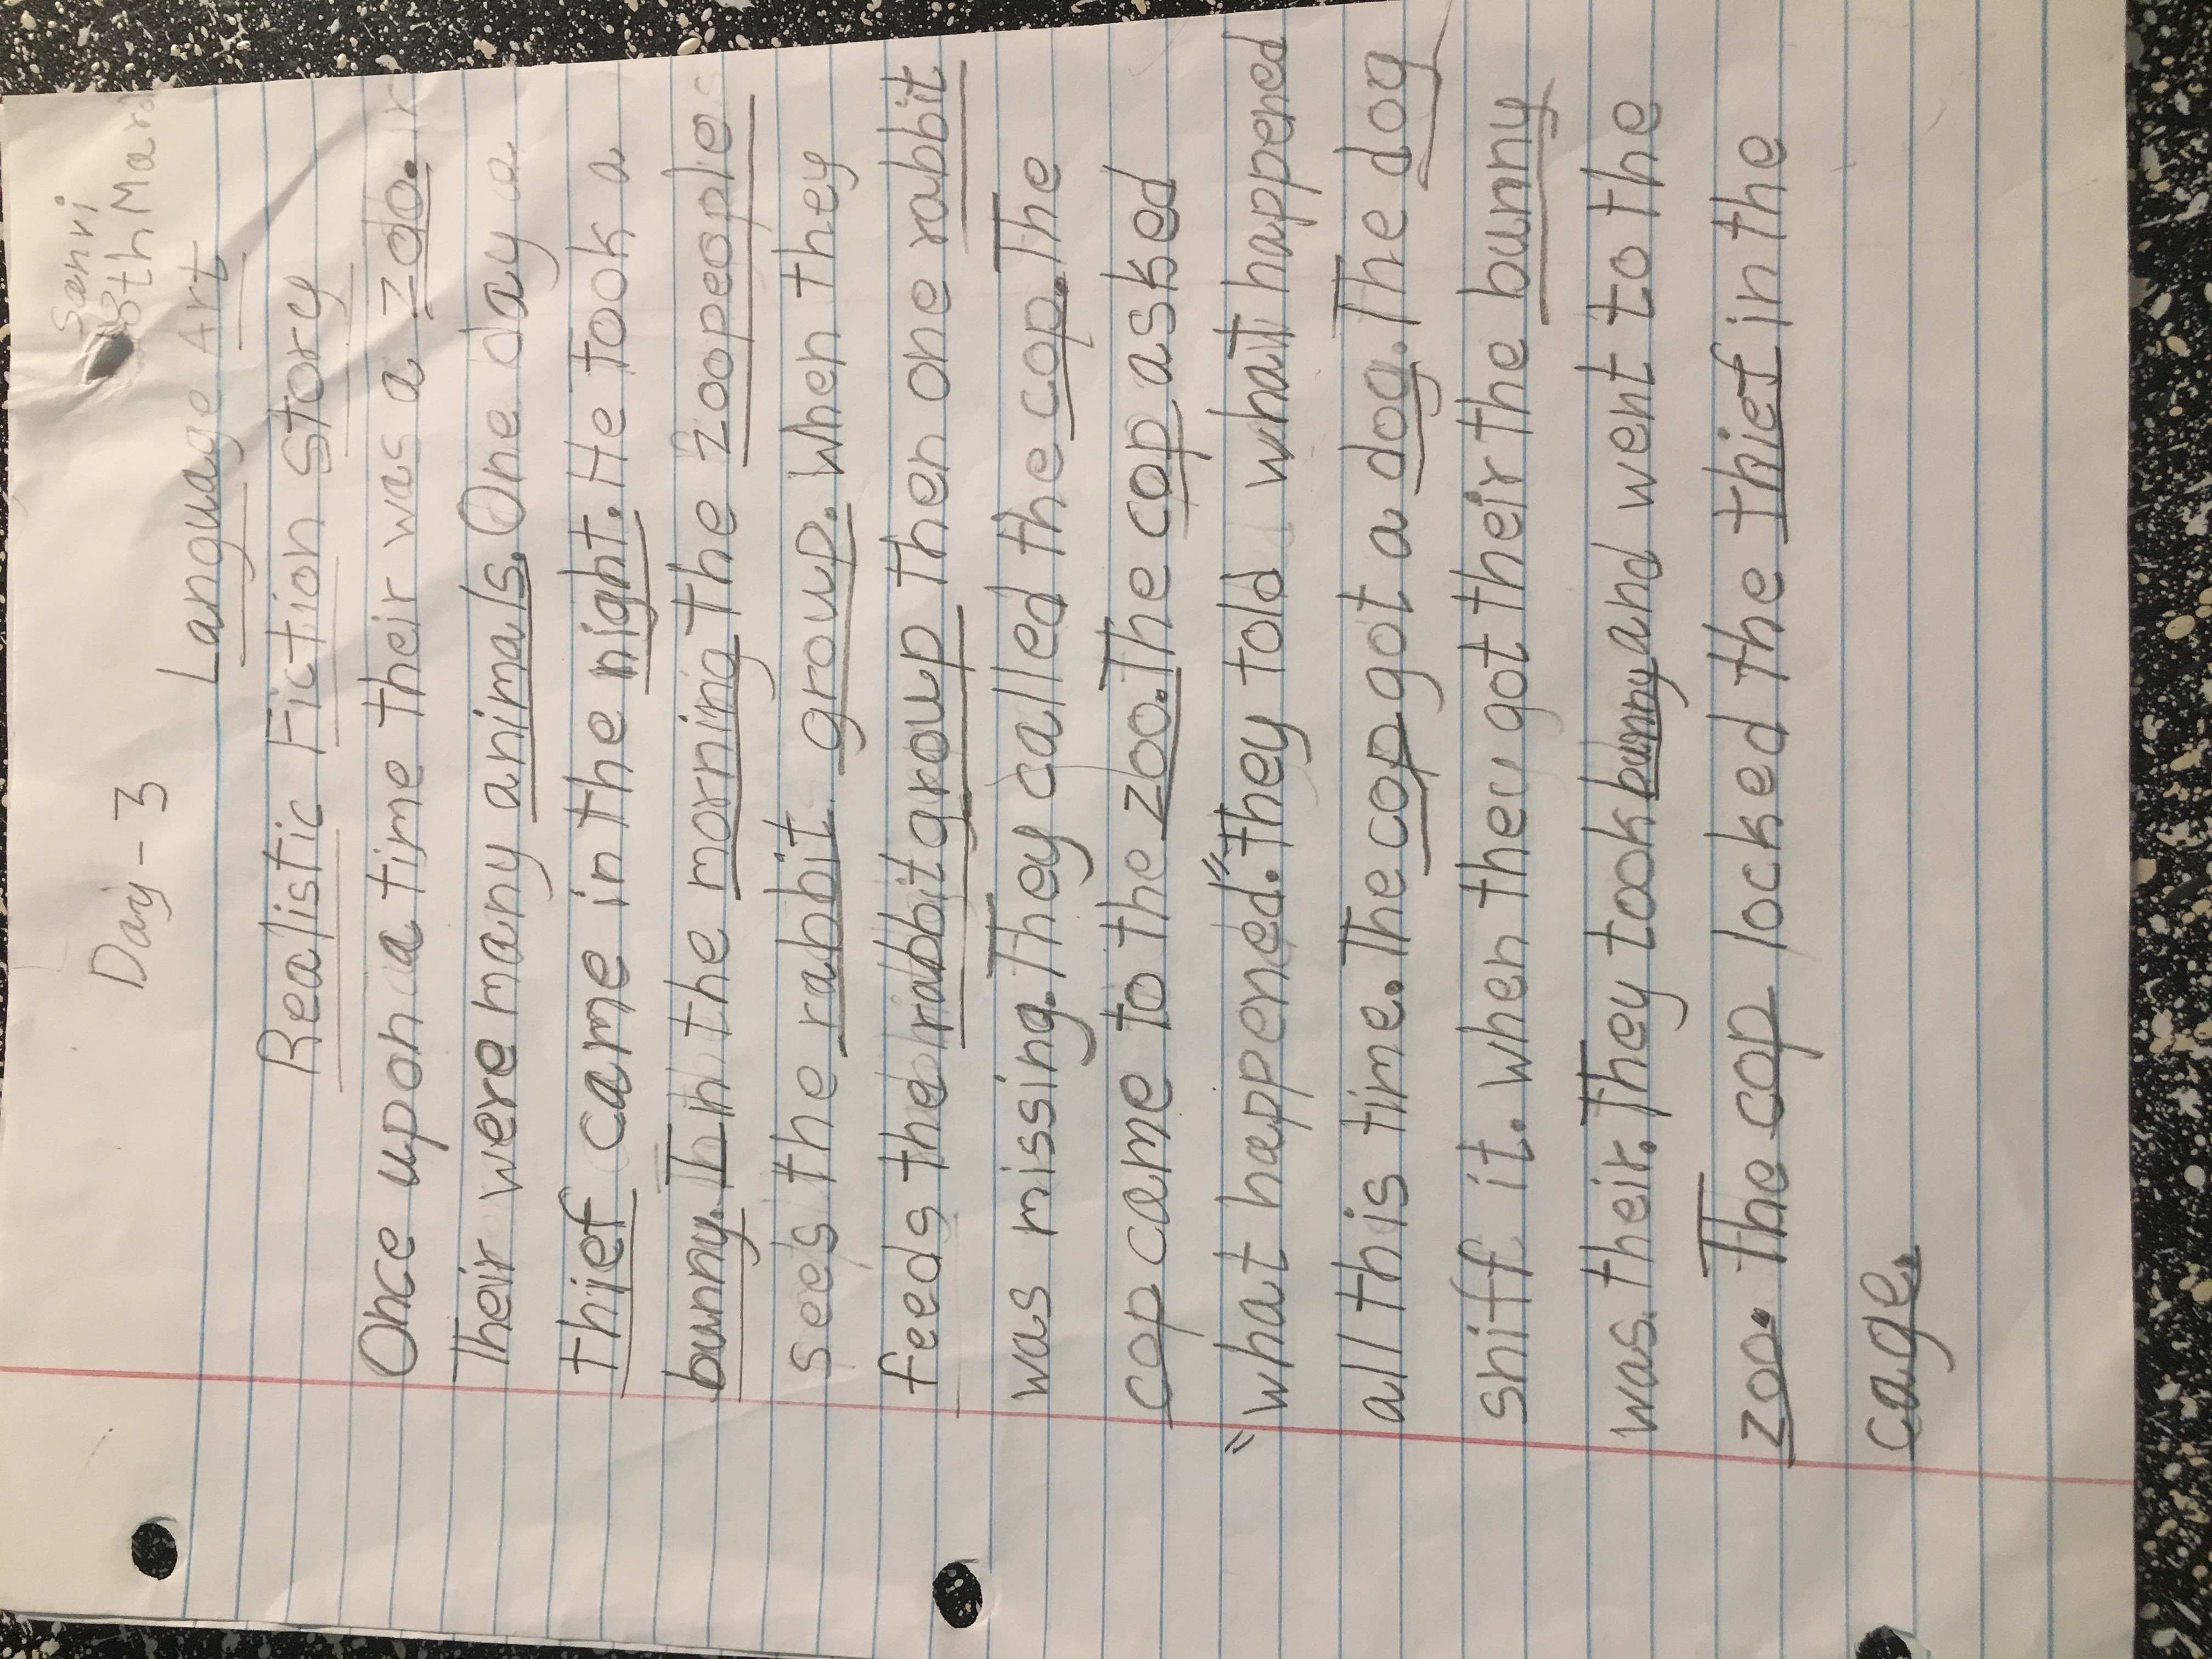 Sanvi
18th March
Day - 3
Language Art
Realistic Fiction story
Once upon a time their was a zoo.
Their were many animals. One day a
thief came in the night. He took a
bunny. In the morning the zoopeople
see's the rabbit group. When they
feeds the rabbit group then one rabbit
was missing. They called the cop. The
cop came to the zoo. The cop asked
"what happened." They told what happened
all this time. The cop got a dog. The dog
sniff it. when they got their the bunny
was their. They took bunny and went to the
zoo. The cop locked the thief in the
cage.